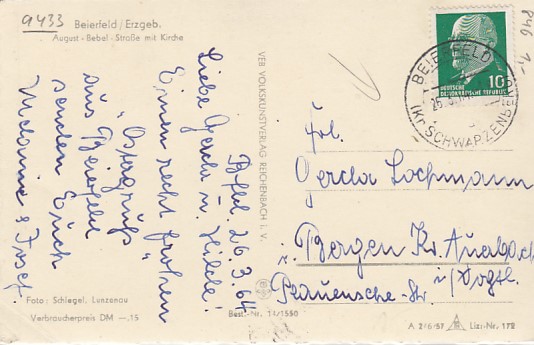 9433
Beierfeld / Erzgeb.
August-Bebel-Straße mit Kirche
Bfld. 26.3.64
Liebe Gerda u. Hilde!
Einen recht frohen
"Ostergruß"
aus Beierfeld
senden Euch
Melanie & Josef.
Foto: Schlegel, Lunzenau
Verbraucherpreis DM -.15
VEB VOLKSKUNSTVERLAG REICHENBACH I. V.
Best.-Nr. 14/1550
846
1.-
10
DEUTSCHE
DEMOKRATISCHE REPUBLIK
BEIERFELD
(Kr. SCHWARZENBERG)
Frl.
Gerda Lochmann
Bergen Kr. Auerbach
i/Vogtl.
Plauensche-Str.
A 2/6/57 Lizi-Nr. 172